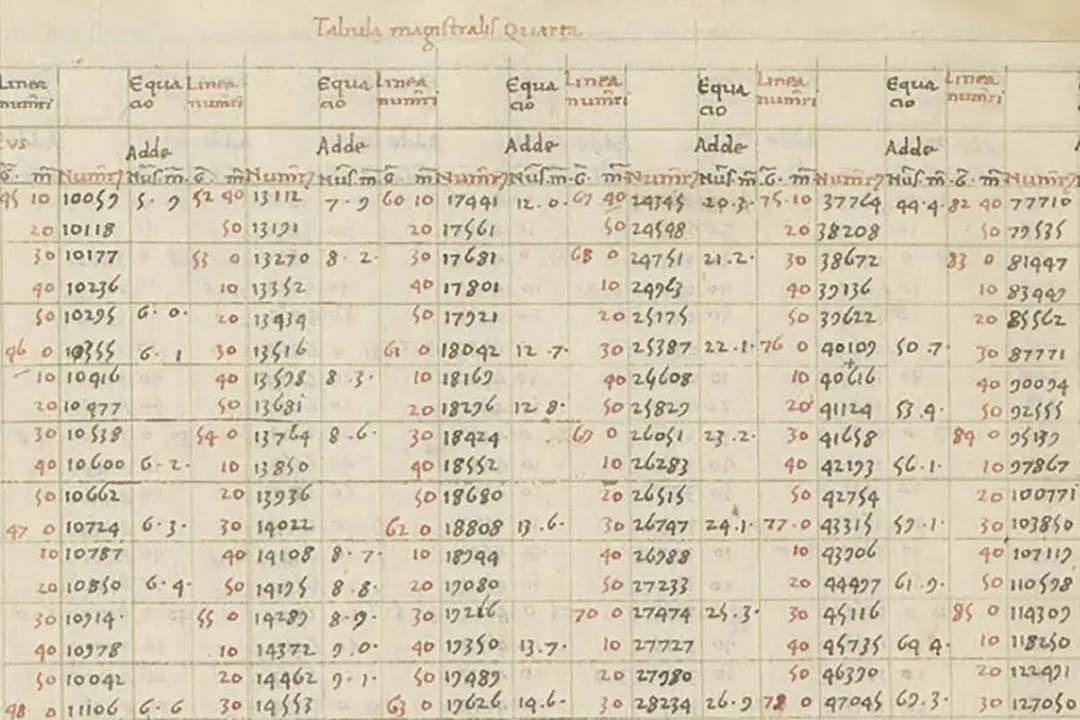 Tabula magistralis Quarta
Linea Equa Linea Equa Linea Equa Linea Equa Linea Equa Linea
num̃ri cio num̃ri cio num̃ri cio num̃ri cio num̃ri cio num̃ri
Adde Adde Adde Adde Adde
G̃. m̃ Num̃ Nũs. m. G̃. m̃ Num̃ Nũs. m G̃. m̃ Num̃ Nũs. m. G̃. m̃ Num̃ Nũs. m. G̃. m̃ Num̃ Nũs. m. G̃. m̃ Num̃
45 10 10059 5·9 52 40 13112 7·9 60 10 17441 12·0· 67 40 24345 20·3· 75·10 37764 44·4· 82 40 77710
20 10118 50 13191 20 17561 50 24548 20 38208 50 79535
30 10177 53 0 13270 8·2· 30 17681 68 0 24751 21·2· 30 38672 83 0 81447
40 10236 10 13352 40 17801 10 24963 40 39136 10 83449
50 10295 6·0· 20 13434 50 17921 20 25175 50 39622 20 85562
46 0 10355 6·1 30 13516 61 0 18042 12·7· 30 25387 22·1· 76 0 40109 50·7· 30 87771
10 10416 40 13598 8·3· 10 18169 40 25608 10 40616 40 90094
20 10477 50 13681 20 18296 12 8· 50 25829 20 41124 53·4· 50 92555
30 10538 54 0 13764 8·6· 30 18424 69 0 26051 23·2· 30 41658 84 0 95139
40 10600 6·2· 10 13850 40 18552 10 26283 40 42193 56·1· 10 97867
50 10662 20 13936 50 18680 20 26515 50 42754 20 100771
47 0 10724 6·3· 30 14022 62 0 18808 13·6· 30 26747 24·1· 77·0 43315 59·1· 30 103850
10 10787 40 14108 8·7· 10 18944 40 26988 10 43906 40 107119
20 10850 6·4· 50 14195 8·8· 20 19080 50 27233 20 44497 61·9· 50 110598
30 10914· 55 0 14289 8·9· 30 19216 70 0 27474 25·3· 30 45116 85 0 114309
40 10978 10 14372 9·0· 40 19350 13·7· 10 27727 40 45735 64 4· 10 118250
50 10042 20 14462 9·1· 50 19489 20 27980 50 46390 20 122491
48 0 11106 6·6 30 14553 63 0 19626 14·6· 30 28234 26·9 78 0 47045 69·3· 30 127050